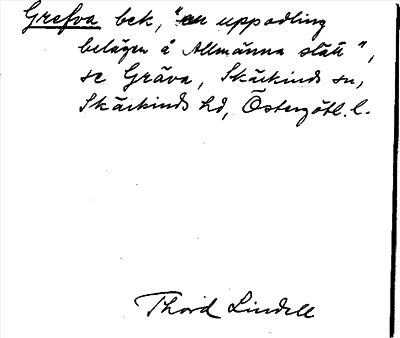 Grefva bek, "en uppodling
belägen å Allmänna slätt",
se Gräva, Skärkinds sn,
Skärkinds hd, Östergötl. l.
Thord Lindell